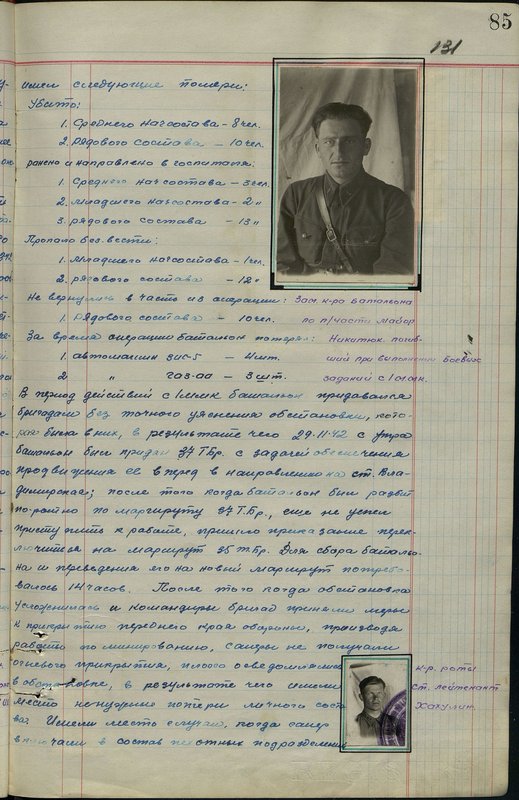 85
131
имел следующие потери:
Убито:
1. Среднего начсостава – 8 чел.
2. Рядового состава – 10 чел.
ранено и направлено в госпиталя:
1. Среднего начсостава – 3 чел.
2. Младшего начсостава – 2 "
3. рядового состава – 13 "
Пропало без вести:
1. Младшего начсостава – 1 чел.
2. рядового состава – 12 "
Не вернулись в часть из операции:
1. Рядового состава – 10 чел.
За время операции батальон потерял:
1. автомашин ЗИС-5 – 4 шт.
2 " ГАЗ-АА – 3 шт.
Зам. к-ра батальона
по п/части майор
Никитюк погиб-
ший при выполнении боевых
заданий с 1 м.м.к.
В период действий с 1 м.м.к батальон придавался
бригадам без точного уяснения обстановки, кото-
рая была в них, в результате чего 29.11.42 с утра
батальон был придан 37 ТБр. с задачей обеспечения
продвижения её вперед в направлении на ст. Вла-
димирская; после того когда батальон был развит
по-ротно по маршруту 37 ТБр., еще не успел
приступить к работе, пришло приказание перек-
лючиться на маршрут 35 ТБр. Для сбора батальо-
на и приведения его на новый маршрут потребо-
валось 14 часов. После того когда обстановка
усложнилась и командиры бригад приняли меры
к прикрытию переднего края обороны, производя
работы по минированию, саперы не получали
огневого прикрытия, плохо осведомлялись
в обстановке, в результате чего имели
место ненужные потери личного соста
ва. Имели место случаи, когда сапер
включали в состав пехотных подразделений
к-р. роты
ст. лейтенант
Хакулин.